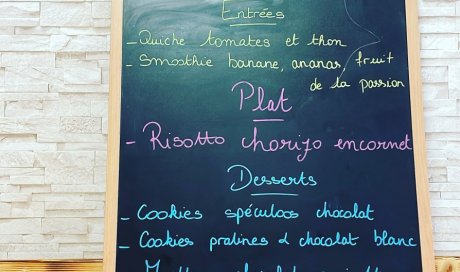 Entrées
- Quiche tomates et thon
- Smoothie banane, ananas, fruit
de la passion
Plat
- Risotto chorizo encornet
Desserts
- Cookies spéculoos chocolat
- Cookies pralines & chocolat blanc